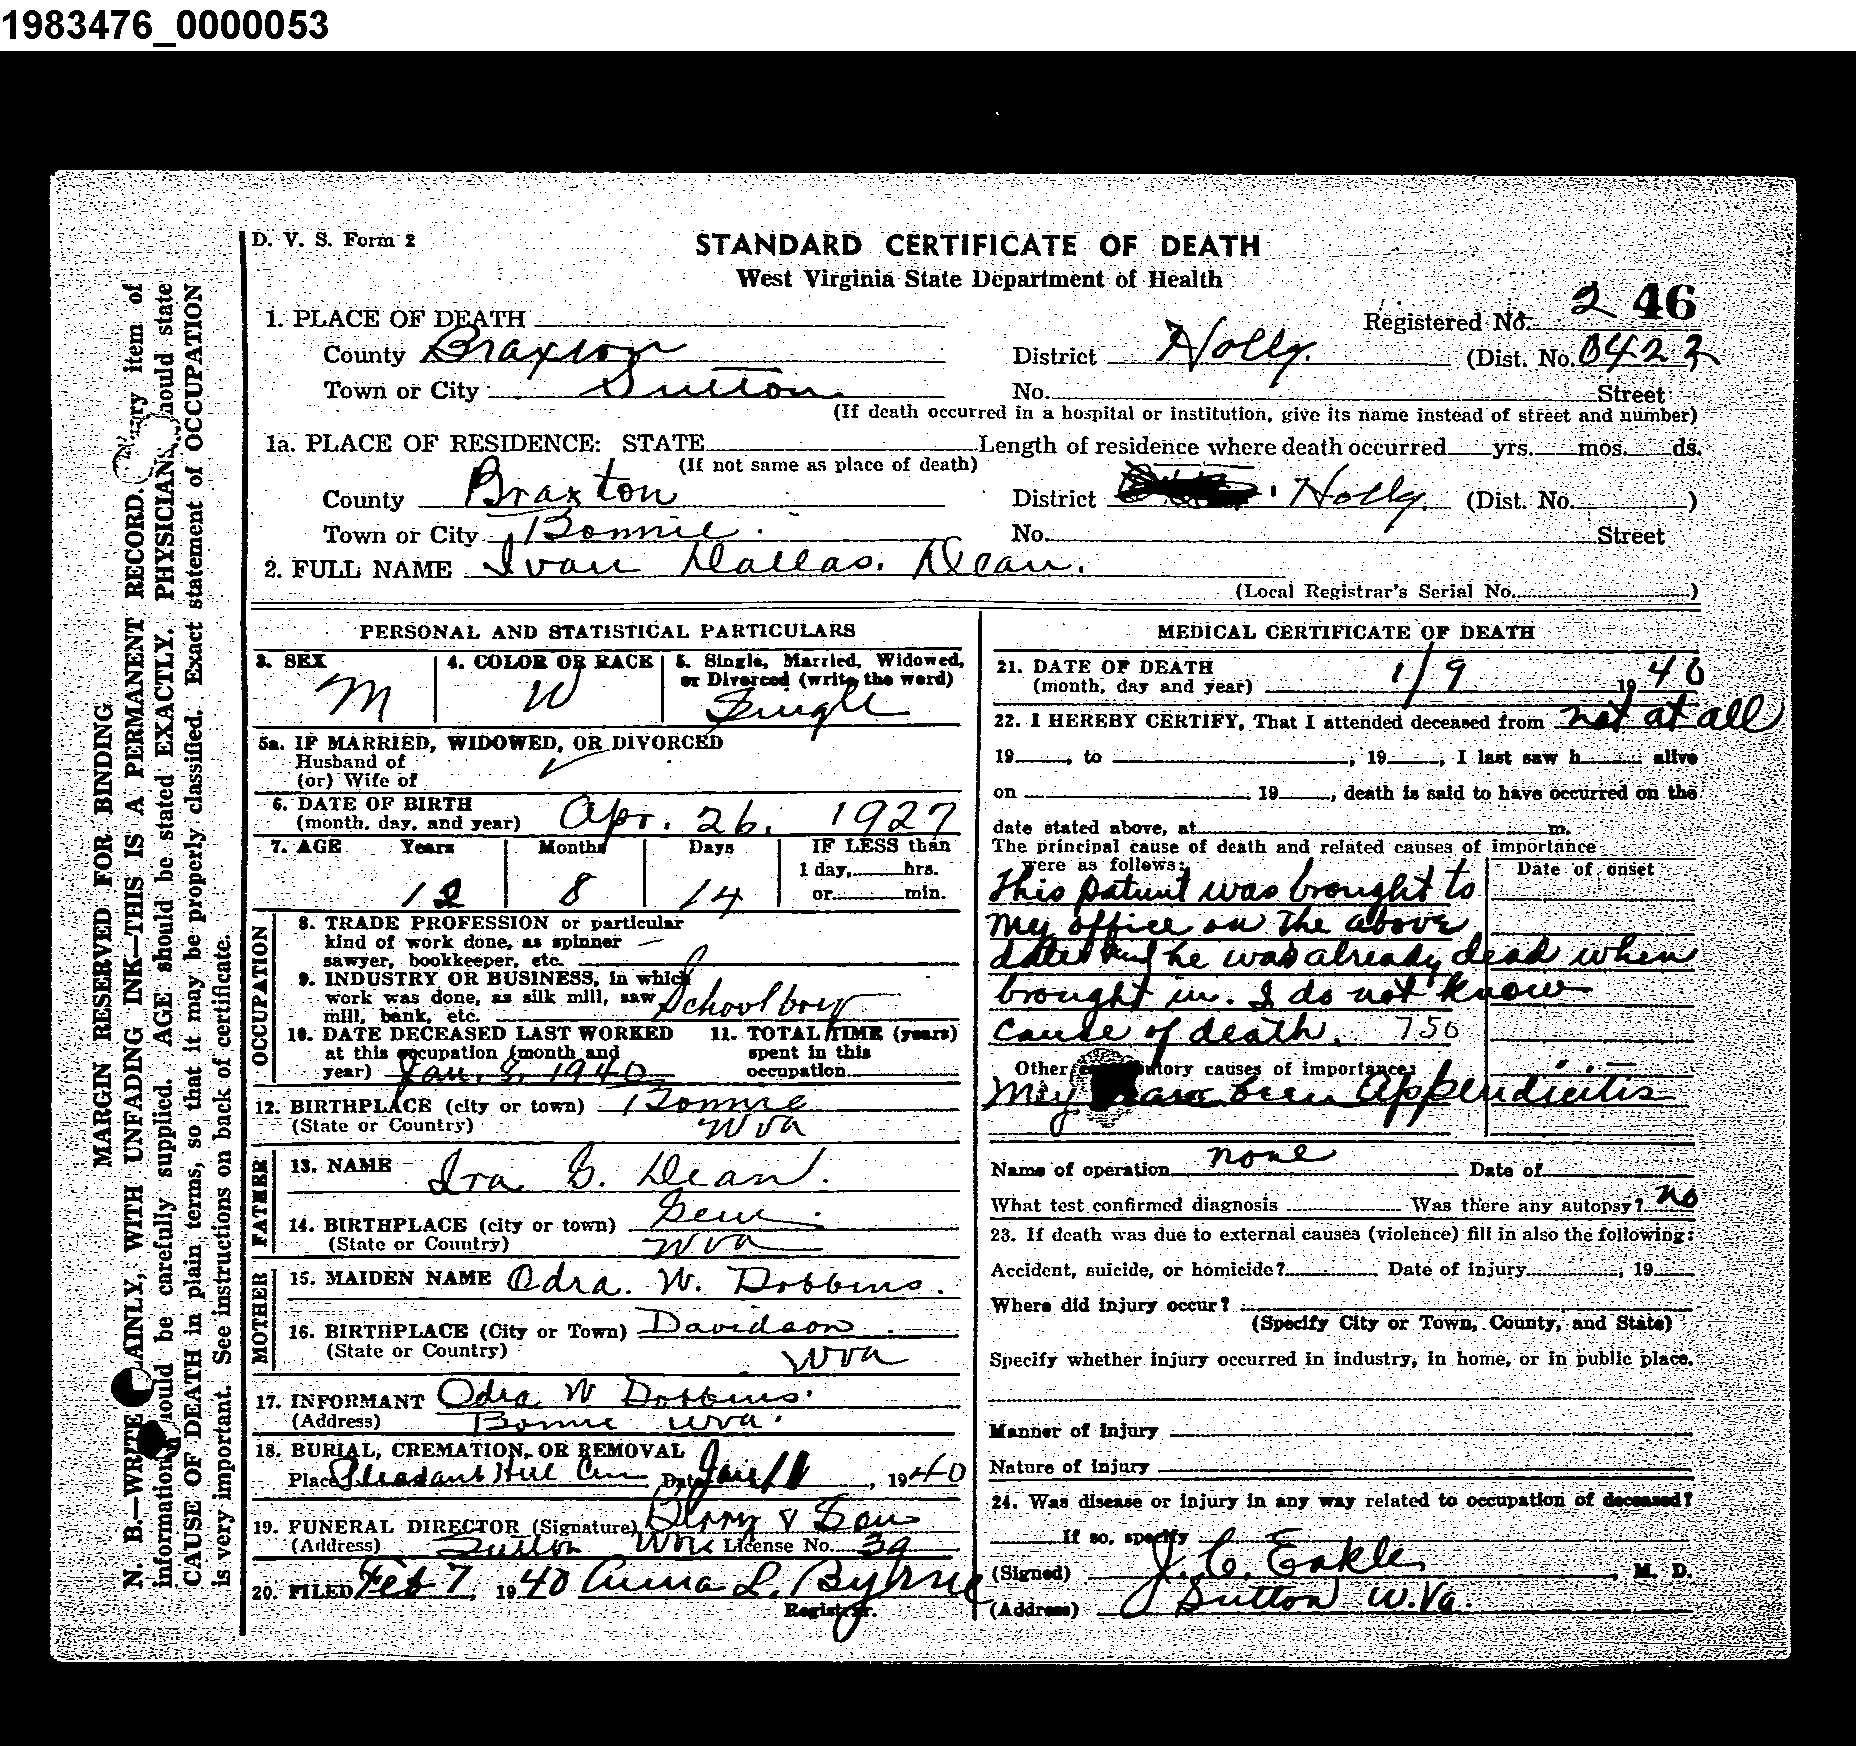 1983476_0000053
D. V. S. Form 2
STANDARD CERTIFICATE OF DEATH
West Virginia State Department of Health
1. PLACE OF DEATH
Registered No. 2 46
County Braxton District Holly. (Dist. No. 0422
Town or City Sutton No. Street
(If death occurred in a hospital or institution, give its name instead of street and number)
1a. PLACE OF RESIDENCE: STATE Length of residence where death occurred yrs. mos. ds.
(If not same as place of death)
County Braxton District Holly. (Dist. No. )
Town or City Bonnie. No. Street
2. FULL NAME Ivan Dallas. Dean.
(Local Registrar's Serial No. )
PERSONAL AND STATISTICAL PARTICULARS
3. SEX M
4. COLOR OR RACE W
5. Single, Married, Widowed, or Divorced (write the word)
Single
5a. IF MARRIED, WIDOWED, OR DIVORCED
Husband of
(or) Wife of
6. DATE OF BIRTH
(month, day, and year) Apr. 26. 1927
7. AGE Years Months Days IF LESS than
1 day, hrs.
12 8 14 or min.
OCCUPATION
8. TRADE PROFESSION or particular
kind of work done, as spinner —
sawyer, bookkeeper, etc.
9. INDUSTRY OR BUSINESS, in which
work was done, as silk mill, saw Schoolboy
mill, bank, etc.
10. DATE DECEASED LAST WORKED
at this occupation (month and
year) Jan. 8. 1940
11. TOTAL TIME (years)
spent in this
occupation
12. BIRTHPLACE (city or town) Bonnie
(State or Country) W Va
FATHER
13. NAME Ira G. Dean.
14. BIRTHPLACE (city or town) Gem.
(State or Country) W Va
MOTHER
15. MAIDEN NAME Odra. W. Dobbins.
16. BIRTHPLACE (City or Town) Davidson
(State or Country) W Va
17. INFORMANT Odra W Dobbins.
(Address) Bonnie W Va.
18. BURIAL, CREMATION, OR REMOVAL
Place Pleasant Hill Cem Date Jan 11, 1940
19. FUNERAL DIRECTOR (Signature) Berry & Son
(Address) Sutton W Va License No. 39
20. FILED Feb 7, 1940 Anna L. Byrne
Registrar.
MEDICAL CERTIFICATE OF DEATH
21. DATE OF DEATH
(month, day and year) 1/9 1940
22. I HEREBY CERTIFY, That I attended deceased from not at all
19 , to , 19 , I last saw h alive
on 19 , death is said to have occurred on the
date stated above, at m.
The principal cause of death and related causes of importance
were as follows: Date of onset
This patient was brought to
my office on the above
date and he was already dead when
brought in. I do not know
cause of death. 750
Other contributory causes of importance:
May have been Appendicitis
Name of operation none Date of
What test confirmed diagnosis Was there any autopsy? no
23. If death was due to external causes (violence) fill in also the following:
Accident, suicide, or homicide? Date of injury , 19
Where did injury occur?
(Specify City or Town, County, and State)
Specify whether injury occurred in industry, in home, or in public place.
Manner of Injury
Nature of Injury
24. Was disease or injury in any way related to occupation of deceased?
If so, specify
(Signed) J. C. Eakle, M. D.
(Address) Sutton W. Va.
MARGIN RESERVED FOR BINDING
N. B.—WRITE PLAINLY, WITH UNFADING INK—THIS IS A PERMANENT RECORD. Every item of
information should be carefully supplied. AGE should be stated EXACTLY. PHYSICIANS should state
CAUSE OF DEATH in plain terms, so that it may be properly classified. Exact statement of OCCUPATION
is very important. See instructions on back of certificate.